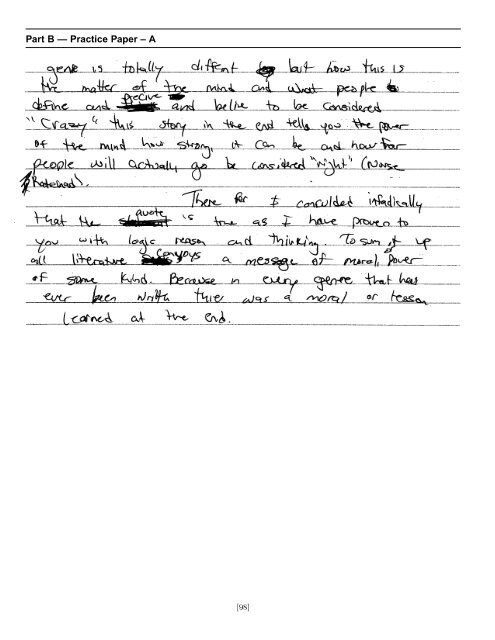 Part B — Practice Paper – A
genre is totally diffrent but how this is
the matter of the mind and what people
define and precive and belive to be considered
"Crazy" this story in the end tells you the power
of the mind how strong it can be and how far
people will actually go be considered "right" (Nurse
Ratched).
There for I conculded infadically
that the quote is true as I have proven to
you with logic reason and thinking. To sum it up
all literature convays a message of moral power
of some kind. Because in every genre that has
ever been writtn thier was a moral or lesson
learned at the end.
[98]